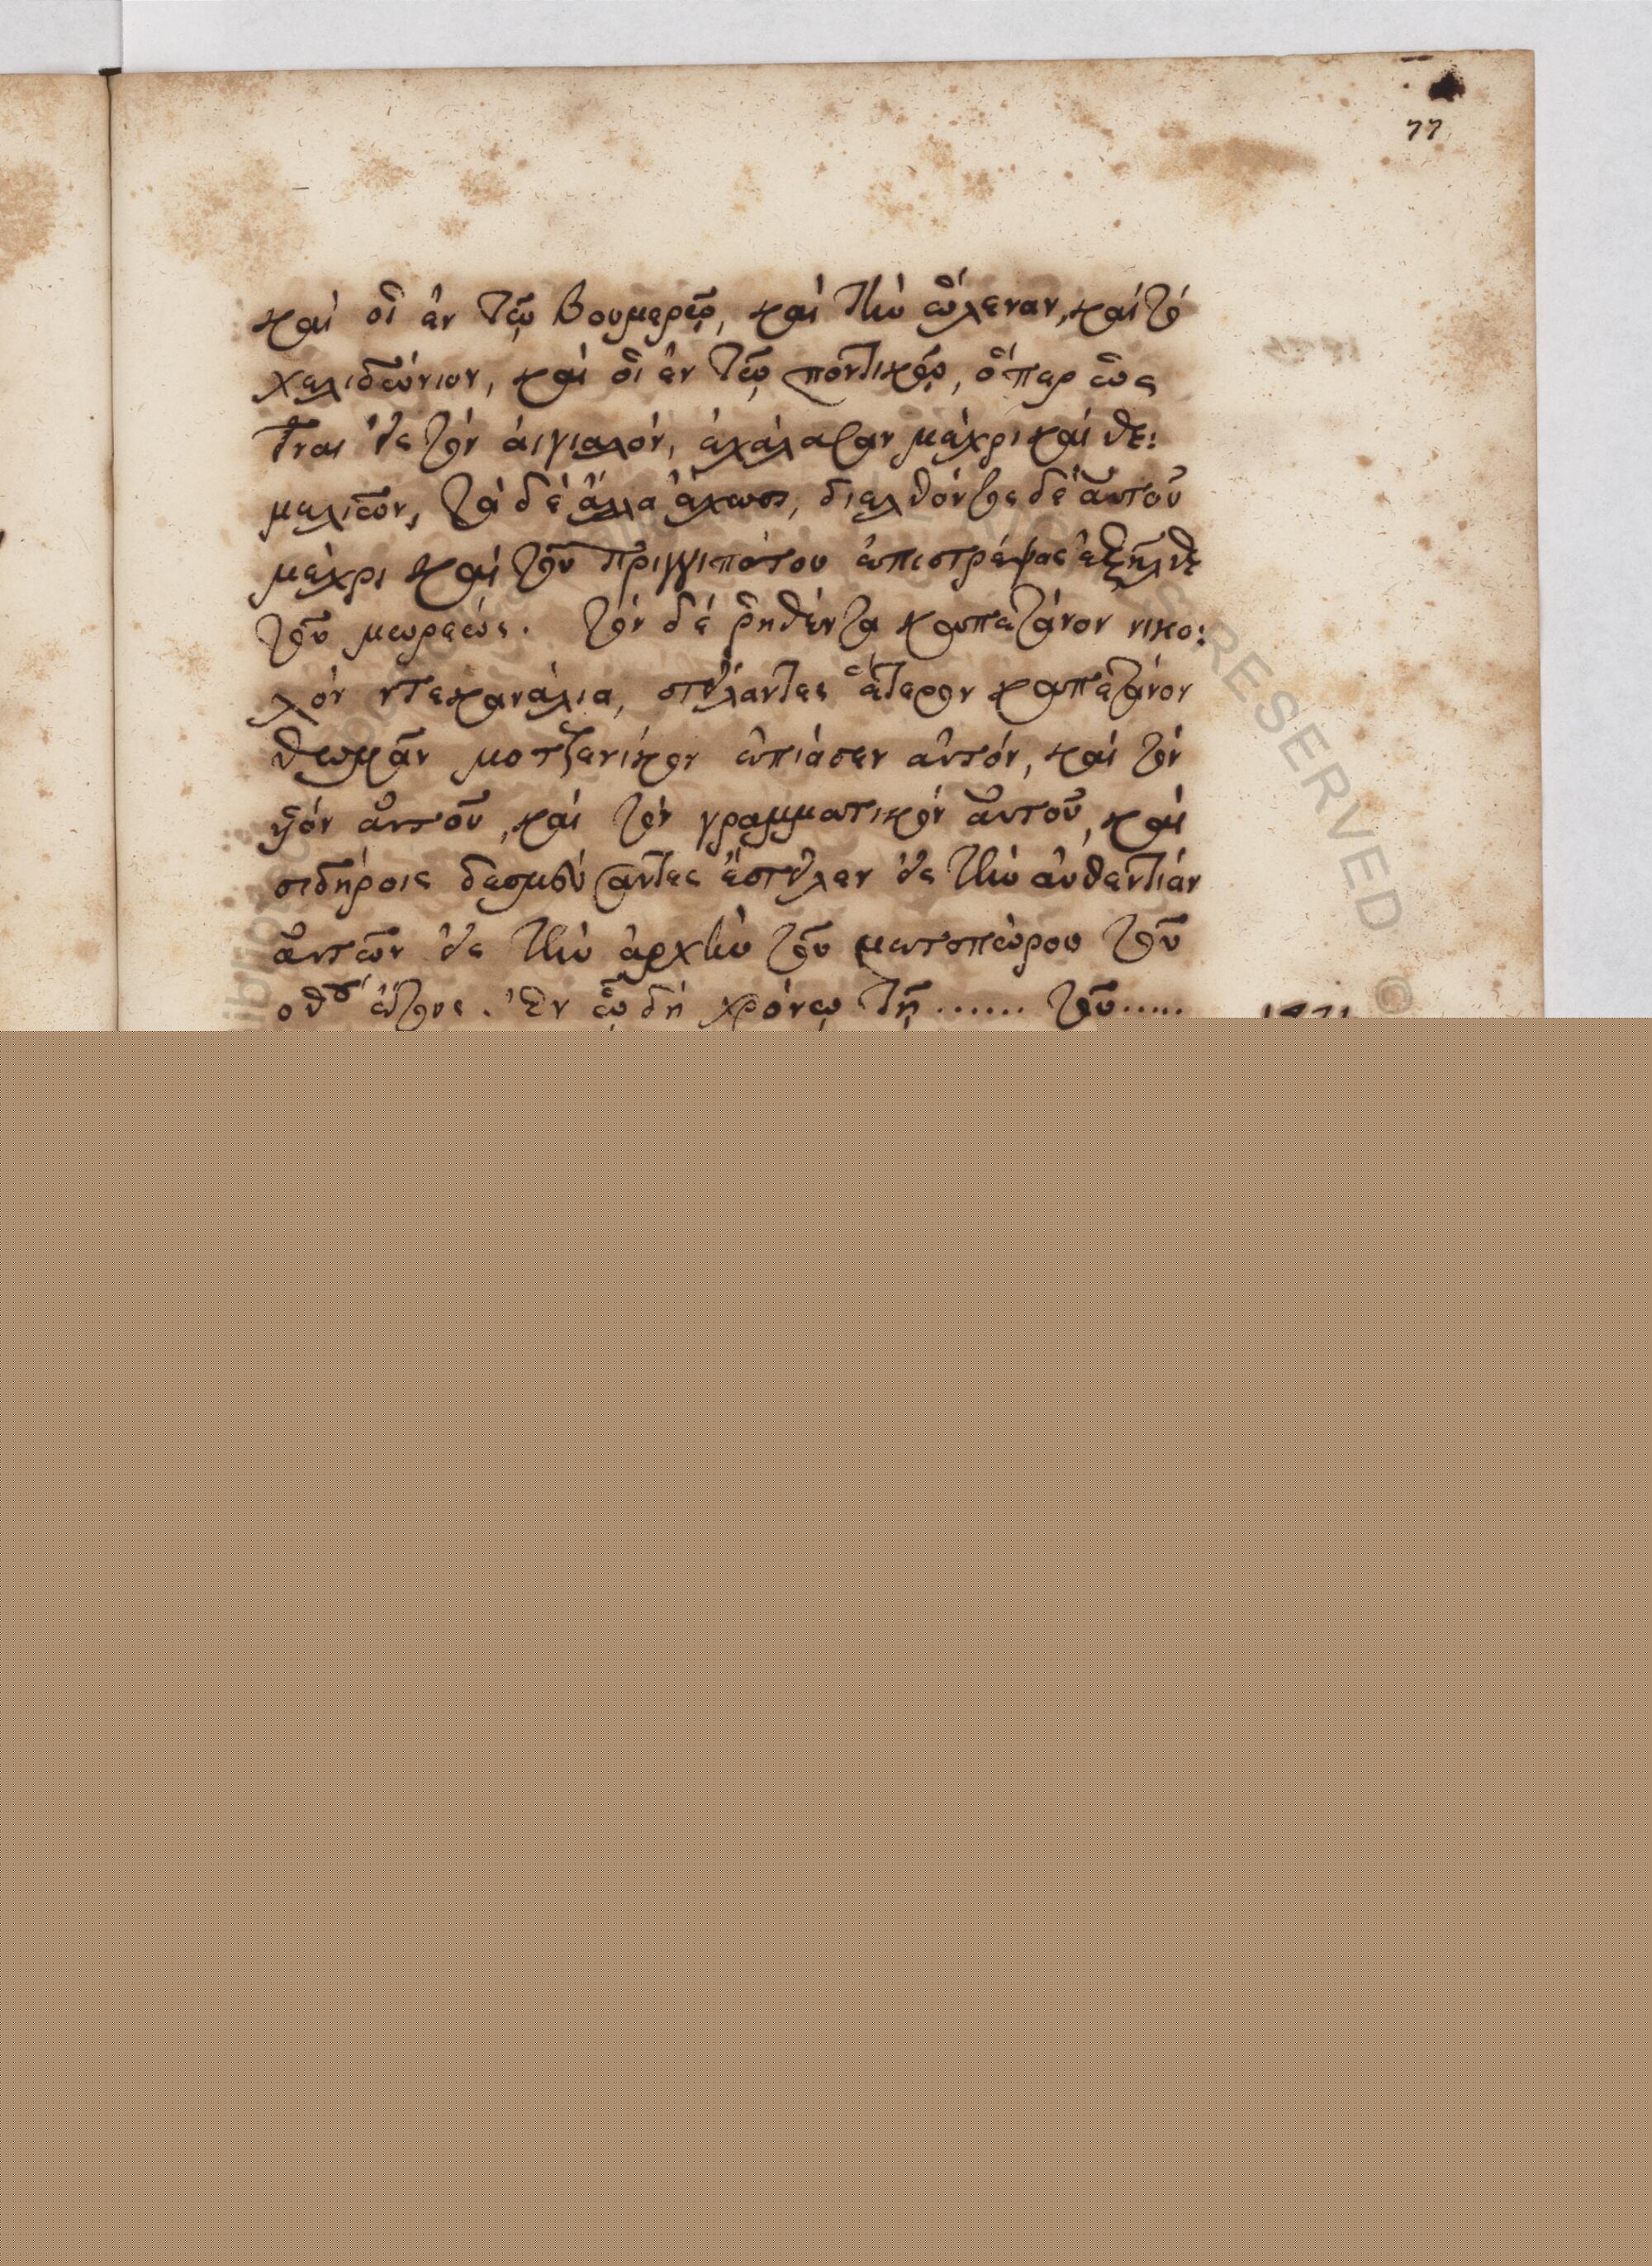 77
καὶ οἱ ἐν τῶ Βουμερῶ, καὶ τὴν ὤλεναν, καὶ τὸ
χελιδώνιον, καὶ οἱ ἐν τῶ ποντικῶ, ὅπερ ὡς
εἶναι εἰς τὸν αἰγιαλόν, ἐχάλασαν μέχρι καὶ θε:
μελίων, τὰ δὲ ἄλλα ἔχωσι, διελθόντος δὲ αὐτοῦ
μέχρι καὶ τοῦ πριγγιπάτου ἐπιστρέψας ἐξῆλθε
τοῦ μωρεώς. τὸν δὲ ῥηθέντα καπετάνον νικο:
λὸν ντεκανάλια, στείλαντες ἕτερον καπετάνον
θωμᾶν μοτζενίκον ἐπιάσεν αὐτόν, καὶ τὸν
υἱὸν αὐτοῦ, καὶ τὸν γραμματικὸν αὐτοῦ, καὶ
σιδήροις δεσμεύσαντες ἐστείλεν εἰς τὴν αὐθεντίαν
αὐτῶν εἰς τὴν ἀρχὴν τοῦ μετοπώρου τοῦ
οθου ἔτους. Ἐν ὧ δὴ χρόνω τῆ ...... τοῦ .....